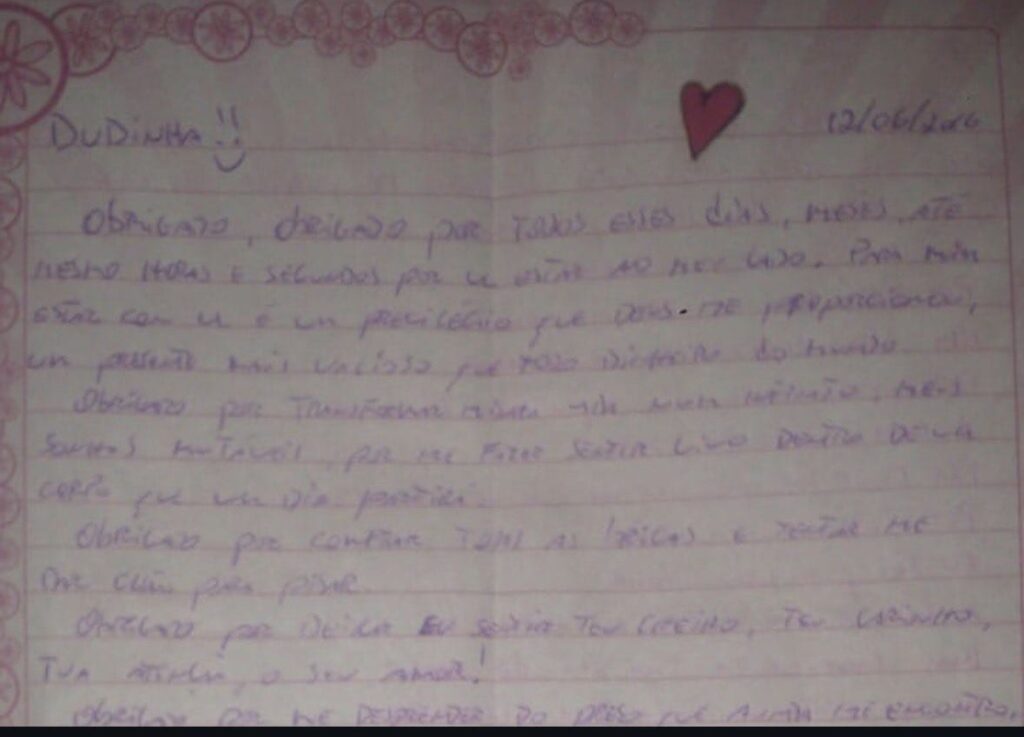 DUDINHA!!
12/06/2016
OBRIGADO, OBRIGADO por TODOS ESSES dias, MESES, ATÉ
MESMO HORAS E SEGUNDOS por U ESTAR AO MEU LADO. PARA MIM
ESTAR COM U É UM PRIVILÉGIO que DEUS ME proporcionou,
UM PRESENTE MAIS VALIOSO que TODO DINHEIRO do MUNDO.
OBRIGADO por TRANSFORMAR MINHA VIDA NUM, MEUS
SONHOS, por ME FAZER SENTIR VIVO DENTRO DE UM
CORPO que UM DIA
OBRIGADO por COMPRAR TODAS AS BRIGAS E TENTAR ME
DAR CHÃO para PISAR.
OBRIGADO por DEIXAR EU SENTIR TEU CHEIRO, TEU CARINHO,
TUA, O SEU AMOR!
OBRIGADO por ME DESPRENDER DO que ME ENCONTRO,